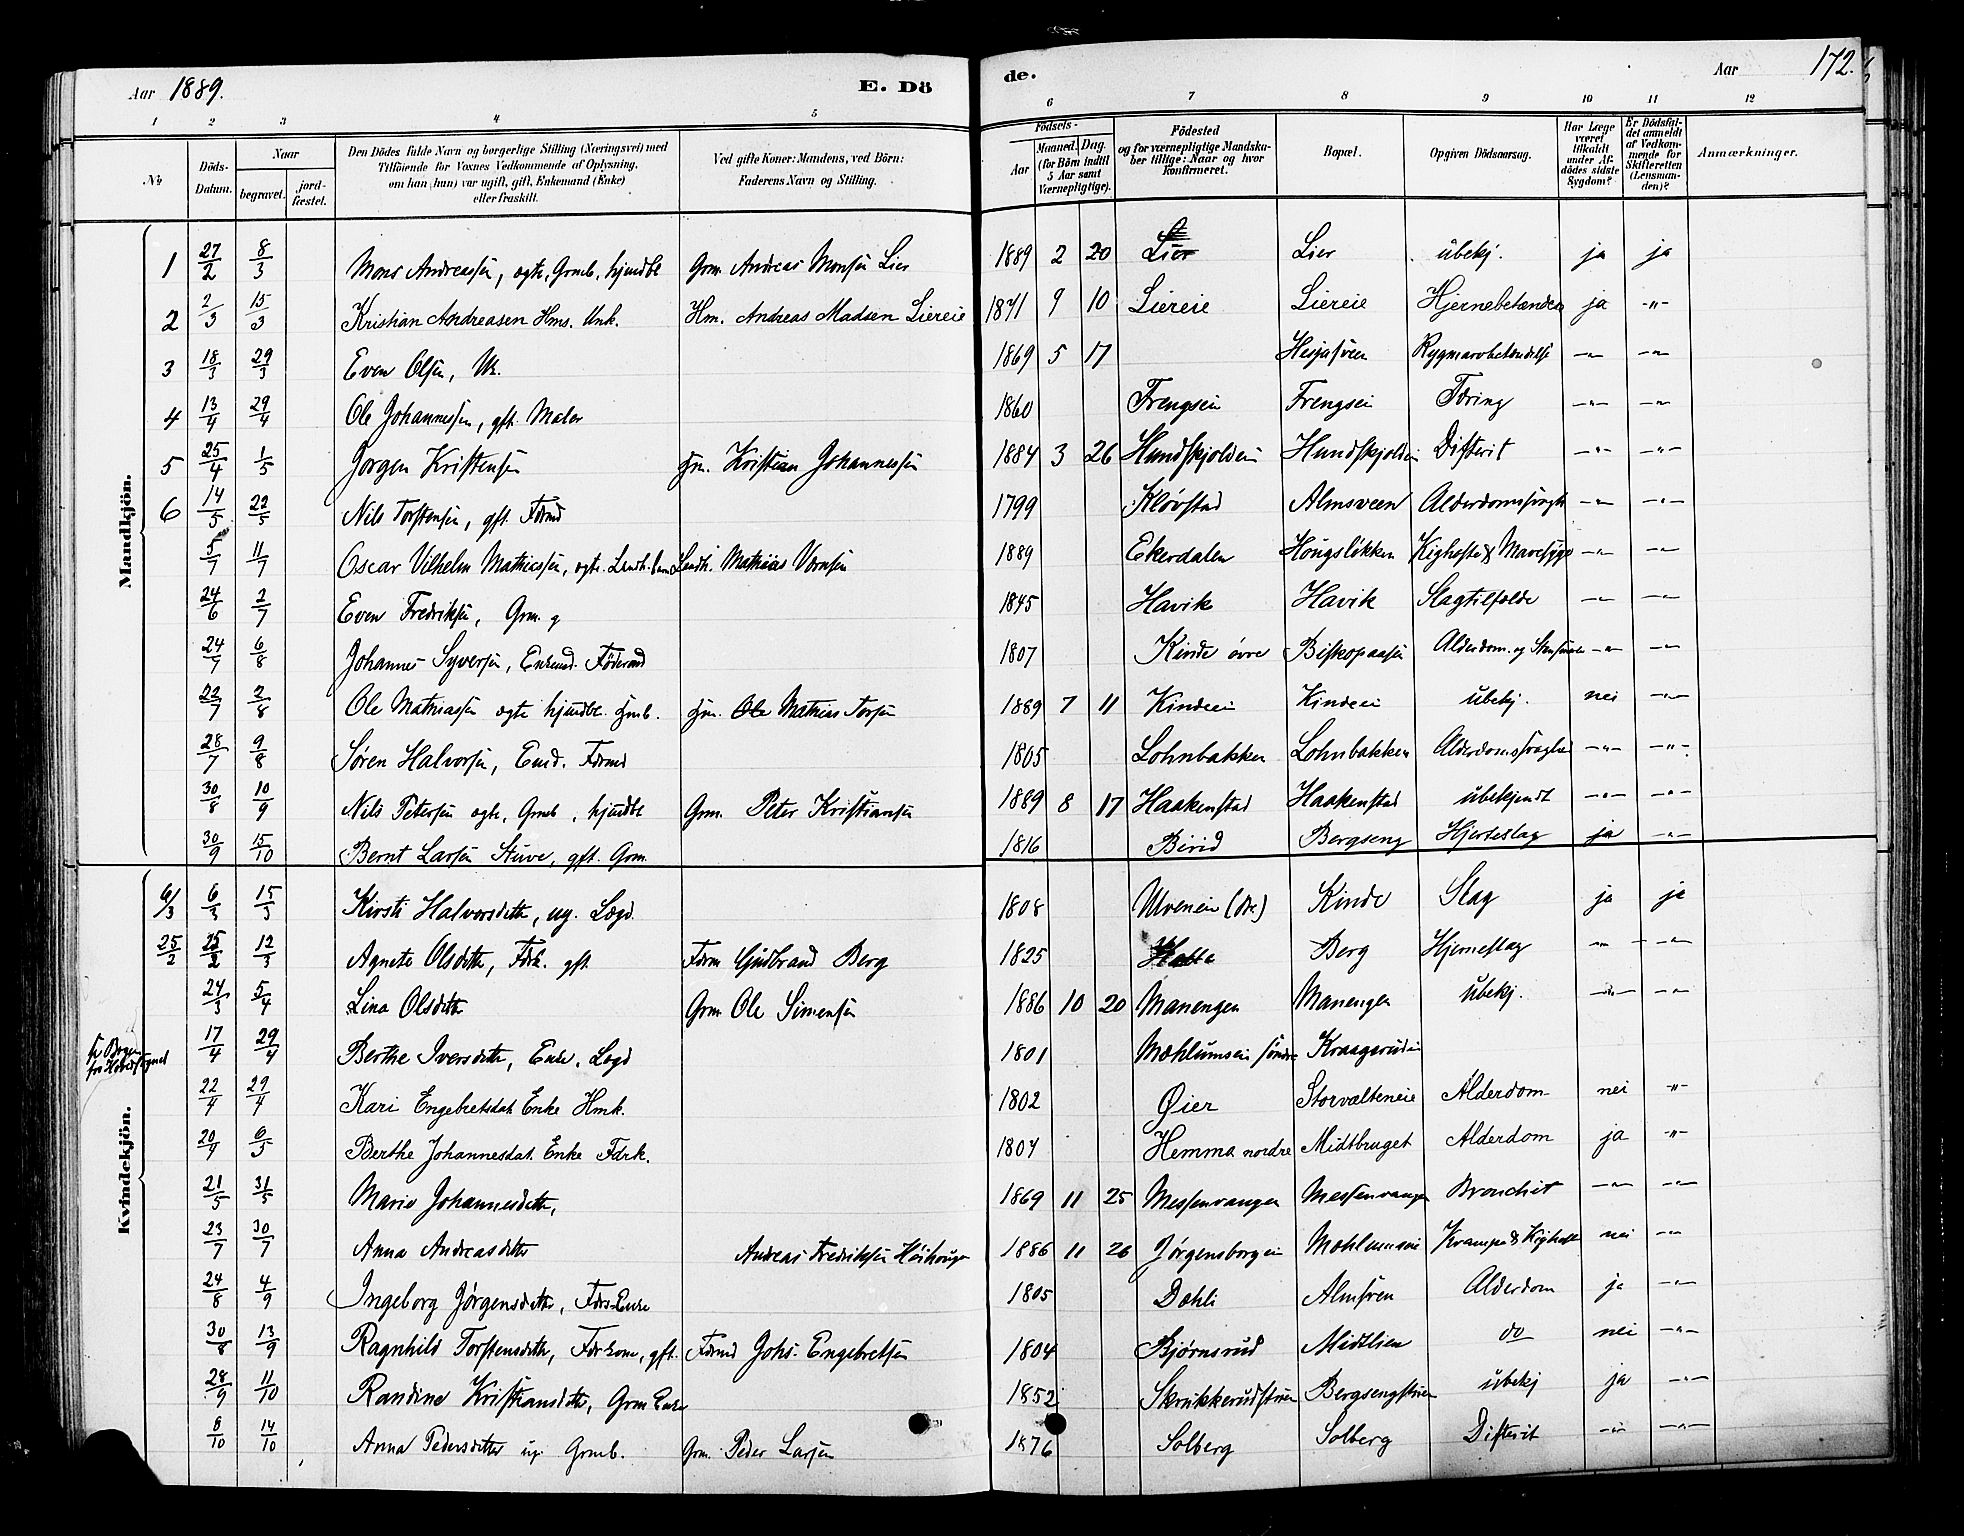 Aar 1889. E. Dö de. Aar 172.
1 2 3 4 5 6 7 8 9 10 11 12
№ Döds-Datum. Naar begravet. jordfæstet. Den Dödes fulde Navn og borgerlige Stilling (Næringsvei) med Tilföiende for Voxnes Vedkommende af Oplysning, om han (hun) var ugift, gift, Enkemand (Enke) eller fraskilt. Ved gifte Koner: Mandens, ved Börn: Faderens Navn og Stilling. Födsels- Aar Maaned. Dag. (for Börn indtil 5 Aar samt Værnepligtige). Födested og for værnepligtige Mandskaber tillige: Naar og hvor konfirmeret. Bopæl. Opgiven Dödsaarsag. Har Læge været tilkaldt under Afdödes sidste Sygdom? Er Dödsfaldet anmeldt af Vedkommende for Skifteretten (Lensmanden)? Anmærkninger.
Mandkjön.
1 27/2 8/3 Mons Andreassen, ægte, Grmb, hjmdbt Grm. Andreas Monsen Lier 1889 2 20 Lier Lier ubekj. ja ja
2 2/3 15/3 Kristian Andreasen Hms. Unk. Hm. Andreas Madsen Liereie 1871 9 10 Liereie Liereie Hjernebetændelse ja -"-
3 18/3 29/3 Even Olsen, Uk. 1869 5 17 Hesjasveen Rygmarvbetændelse -"- -"-
4 13/4 29/4 Ole Johannessen, gft. Maler 1860 Frengseie Frengsei Tæring -"- -"-
5 25/4 1/5 Jørgen Kristensen Hm. Kristian Johannessen 1884 3 26 Hundskjoldeie Hundskjoldei Difterit -"- -"-
6 14/5 22/5 Nils Torstensen, gft. Fdrmd 1799 Kløvstad Almsveen Alderdomssvagh -"- -"-
5/7 11/7 Oscar Vilhelm Mathiassen, ægte. Landh. barn Landh. Mathias Vornsen 1889 Ekerdalen Hougsløkken Kighoste & Mavesyge -"- -"-
24/6 2/7 Even Fredriksen, Grm. g 1845 Havik Havik Slagtilfælde -"- -"-
24/7 6/8 Johannes Syversen, Enkmd. Föderaad 1807 Kinde övre Biskopaasen Alderdom. og -"- -"-
22/7 2/8 Ole Mathiassen ægte hjmdbt. Hmb. Hm. Ole Mathias Torsen 1889 7 11 Kindeei Kindeei ubekj. nei -"-
28/7 9/8 Søren Halvorsen, Emd. Fdrmd 1805 Lohnbakken Lohnbakken Alderdomssvaghed -"- -"-
30/8 10/9 Nils Petersen ægte, Grmb, hjmdbt Grm. Peter Kristiansen 1889 8 17 Haakenstad Haakenstad ubekjendt -"- -"-
30/9 15/10 Bernt Larsen Stuve, gft. Grm. 1816 Birid Bergseng Hjerteslag ja -"-
Kvindekjön.
6/3 6/3 15/3 Kirsti Halvorsdatter, ug. Lægd 1808 Ulveneie Kinde Slag ja ja
25/2 25/2 12/3 Agnete Olsdatter, Fdrk. gft Fdrm Gudbrand Berg 1825 Berg Hjerneslag -"- -"-
24/3 5/4 Lina Olsdatter Grm Ole Simensen 1886 10 20 Manengen Manengen ubekj. -"- -"-
17/4 29/4 Berthe Iversdatter, Enke. Lægd 1801 Mæhlumseie søndre Kraagerudei
22/4 29/4 Kari Engebretsdat. Enke Hmk. 1802 Øier Storvælteneie Alderdom nei -"-
20/4 6/5 Berthe Johannesdat. Enke Fdrk. 1804 Hemma nordre Midtbruget Alderdom ja -"-
21/5 31/5 Marie Johannesdatter, 1869 11 25 Messenvangen Messenvangen Bronchit -"- -"-
23/7 30/7 Anna Andreasdatter Andreas Fredriksen Höihougen 1886 11 26 Jørgensborgeie Mæhlumseie Krampe & Kighoste nei -"-
24/8 4/9 Ingeborg Jørgensdatter, Fdrs-Enke 1805 Dæhli Almsveen Alderdom ja -"-
30/8 13/9 Ragnhild Torstensdatter, Fdrkone, gft. Fdrmd Johs. Engebretsen 1804 Bjørnsrud Midtlien do nei -"-
28/9 11/10 Randine Kristiansdatter, Grm Enke 1852 Skrukkerudstuen Bergsengstuen ubekj ja -"-
8/10 14/10 Anna Pedersdatter ug Grmb. Grm. Peder Larsen 1876 Solberg Solberg Difterit -"- -"-